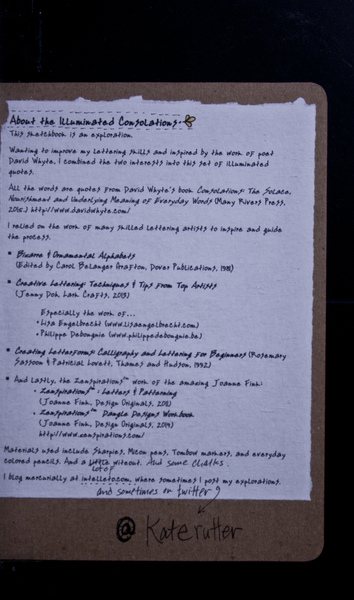 About the Illuminated Consolations
This sketchbook is an exploration.
Wanting to improve my lettering skills and inspired by the work of poet
David Whyte, I combined the two interests into this set of illuminated
quotes.
All the words are quotes from David Whyte's book Consolations: The Solace,
Nourishment and Underlying Meaning of Everyday Words (Many Rivers Press,
2015.) http://www.davidwhyte.com/
I relied on the work of many skilled lettering artists to inspire and guide
the process.
• Bizarre & Ornamental Alphabets
(Edited by Carol Belanger Grafton, Dover Publications, 1981)
• Creative Lettering: Techniques & Tips From Top Artists
(Jenny Doh, Lark Crafts, 2013)
Especially the work of...
• Lisa Engelbrecht (www.lisaengelbrecht.com)
• Philippe Debongnie (www.philippedebongnie.be)
• Creating Letterforms: Calligraphy and Lettering For Beginners (Rosemary
Sassoon & Patricia Lovett, Thames and Hudson, 1992)
• And lastly, the Zenspirations™ work of the amazing Joanne Fink:
• Zenspirations™: Letters & Patterning
(Joanne Fink, Design Originals, 2011)
• Zenspirations™ Dangle Designs Workbook
(Joanne Fink, Design Originals, 2014)
http://www.zenspirations.com/
Materials used include Sharpies, Micon pens, Tombow markers, and everyday
colored pencils. And a little witeout. And some cheats.
lot of
I blog mercurially at intelleto.com, where sometimes I post my explorations.
and sometimes on twitter
@ Katerutter